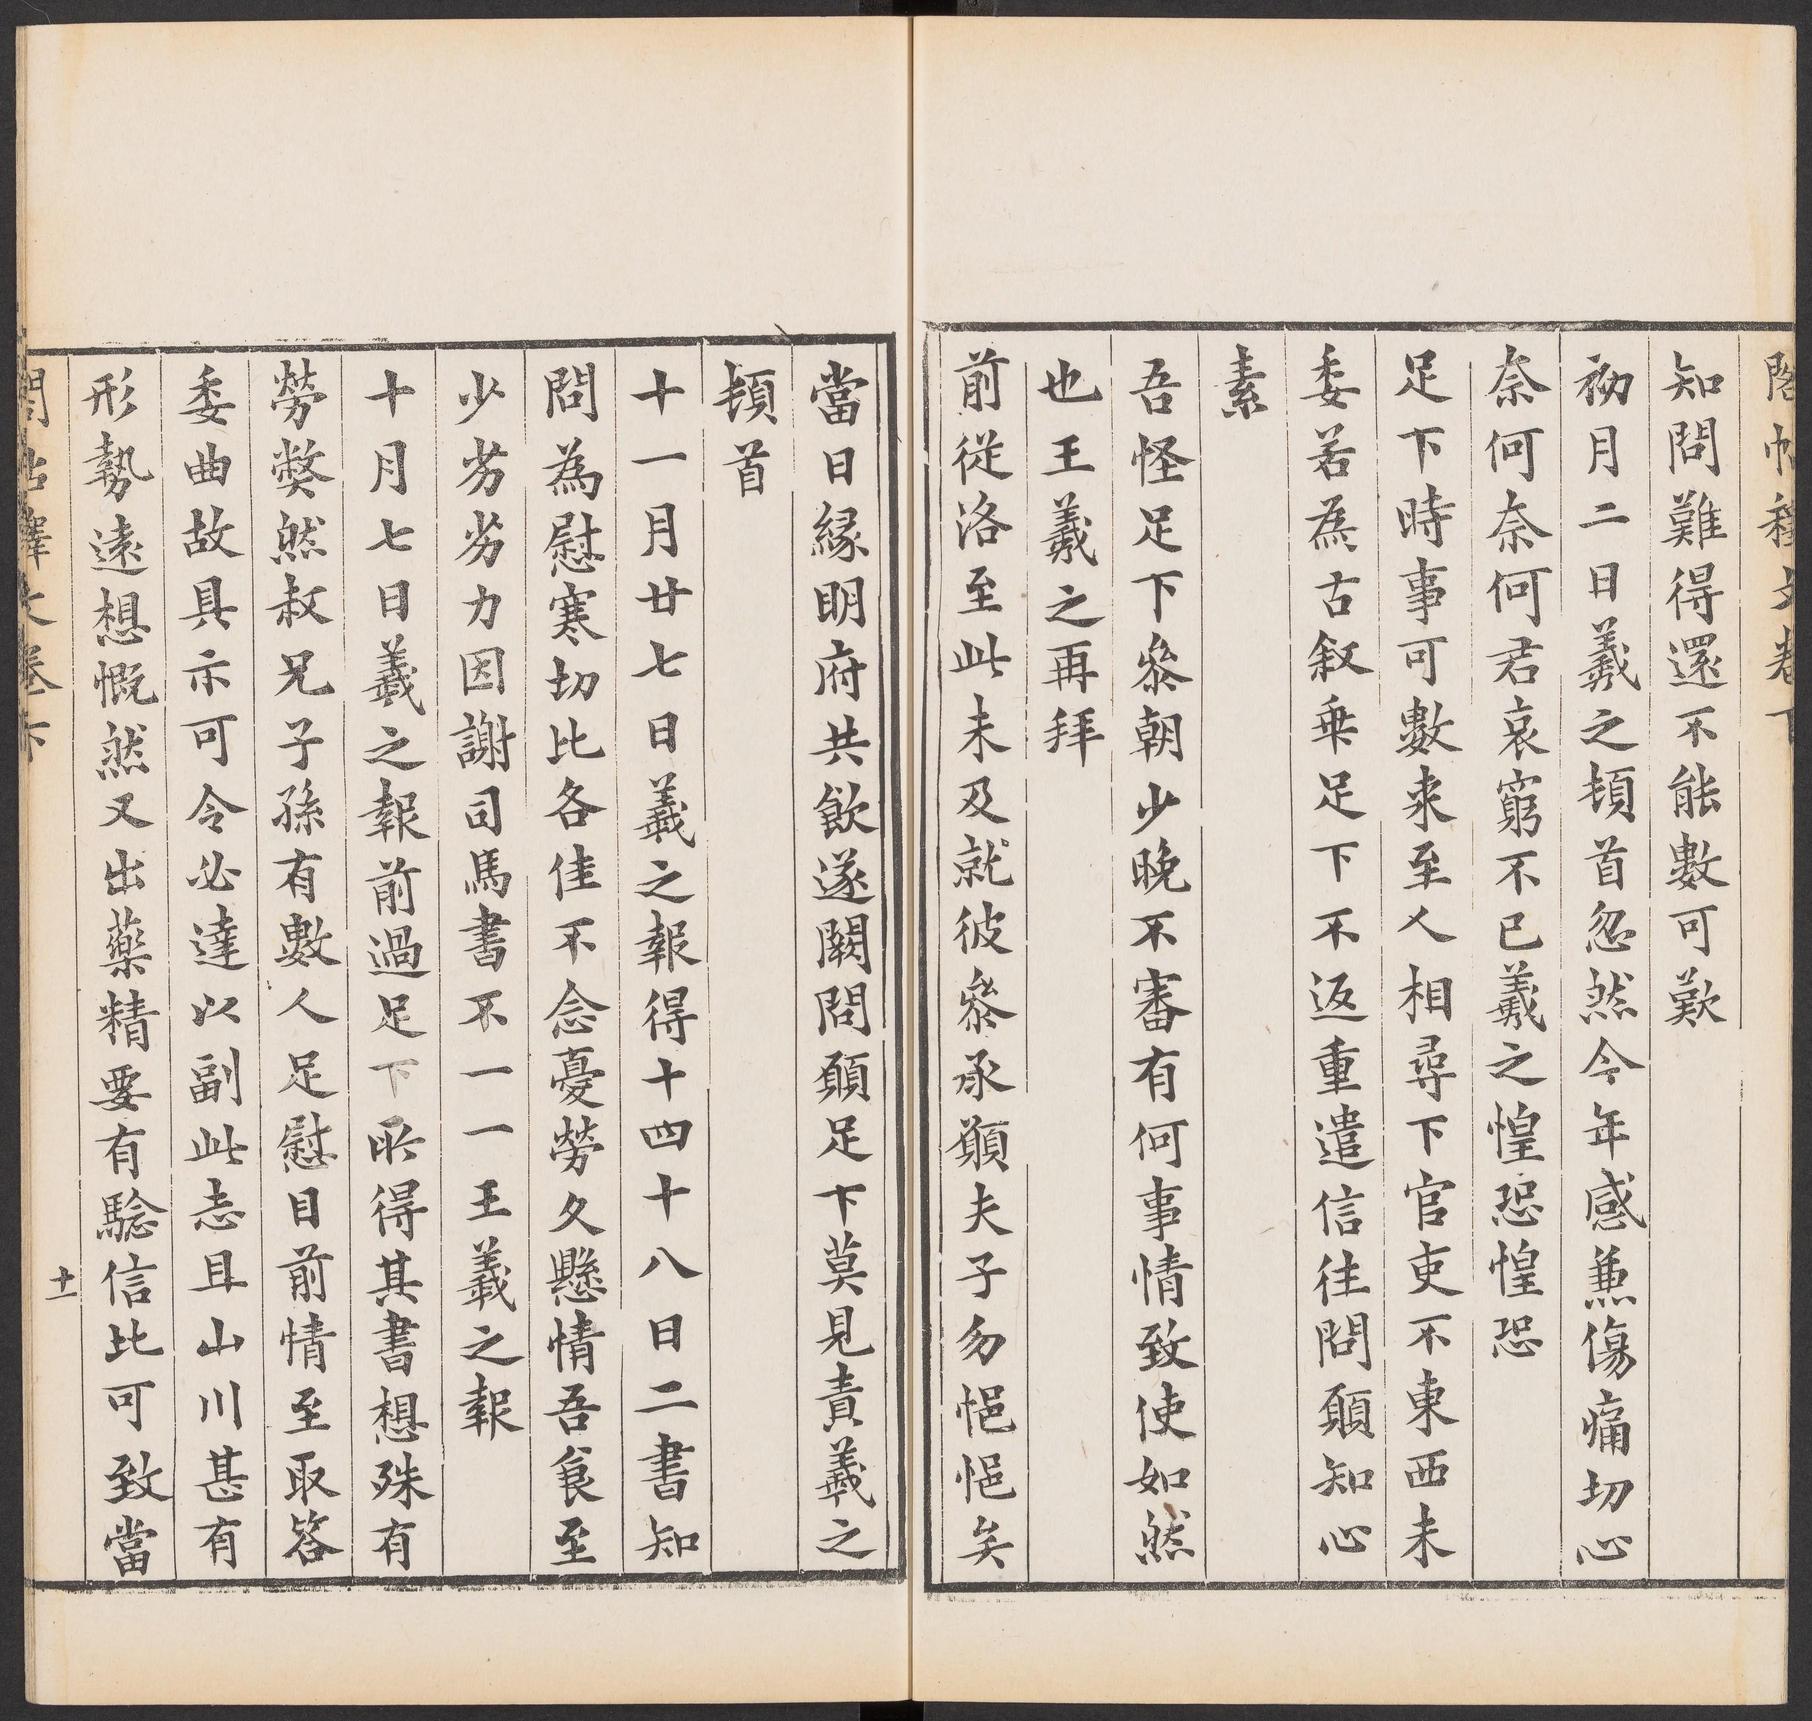 閣帖釋文卷下
知問難得還不能數可歎
初月二日羲之頓首忽然今年感兼傷痛切心
奈何奈何君哀窮不已羲之惶恐惶恐
足下時事可數來至人相尋下官吏不東西未
委若為古叙乗足下不返重遣信往問願知心
素
吾怪足下參朝少晚不審有何事情致使如然
也王羲之再拜
前從洛至此未及就彼參承願夫子勿悒悒矣
當日緣明府共飲遂闕問願足下莫見責羲之
頓首
十一月廿七日羲之報得十四十八日二書知
問為慰寒切比各佳不念憂勞久懸情吾食至
少劣劣力因謝司馬書不一一王羲之報
十月七日羲之報前過足下所得其書想殊有
勞弊然叔兄子孫有數人足慰目前情至取答
委曲故具示可令必達以副此志且山川甚有
形勢遠想慨然又出藥精要有驗信比可致當
閣帖釋文卷下
十一